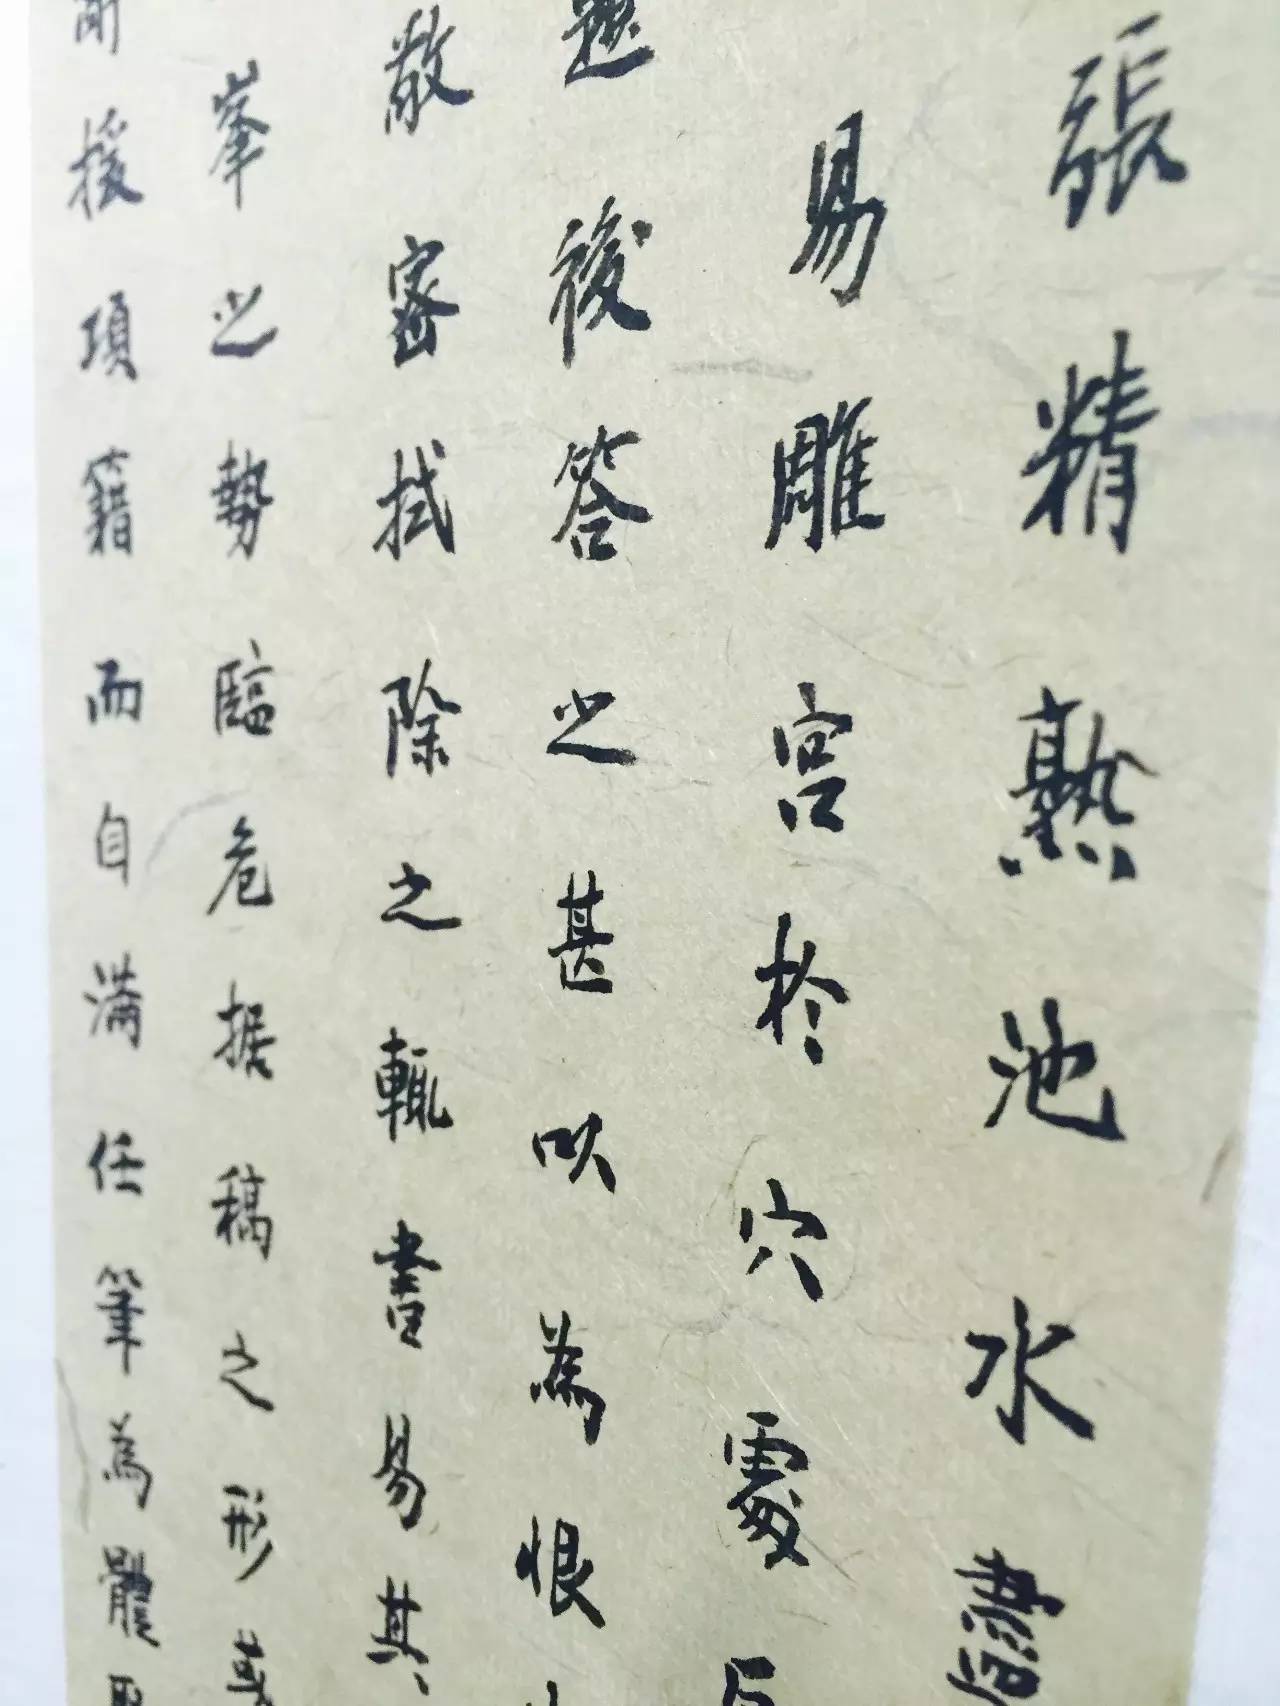 張精熟池水盡
易雕宮於穴處
題後答之甚以為恨
敬密拭除之輒書易其
峯之勢臨危據稿之形或
援項籍而自滿任筆為體